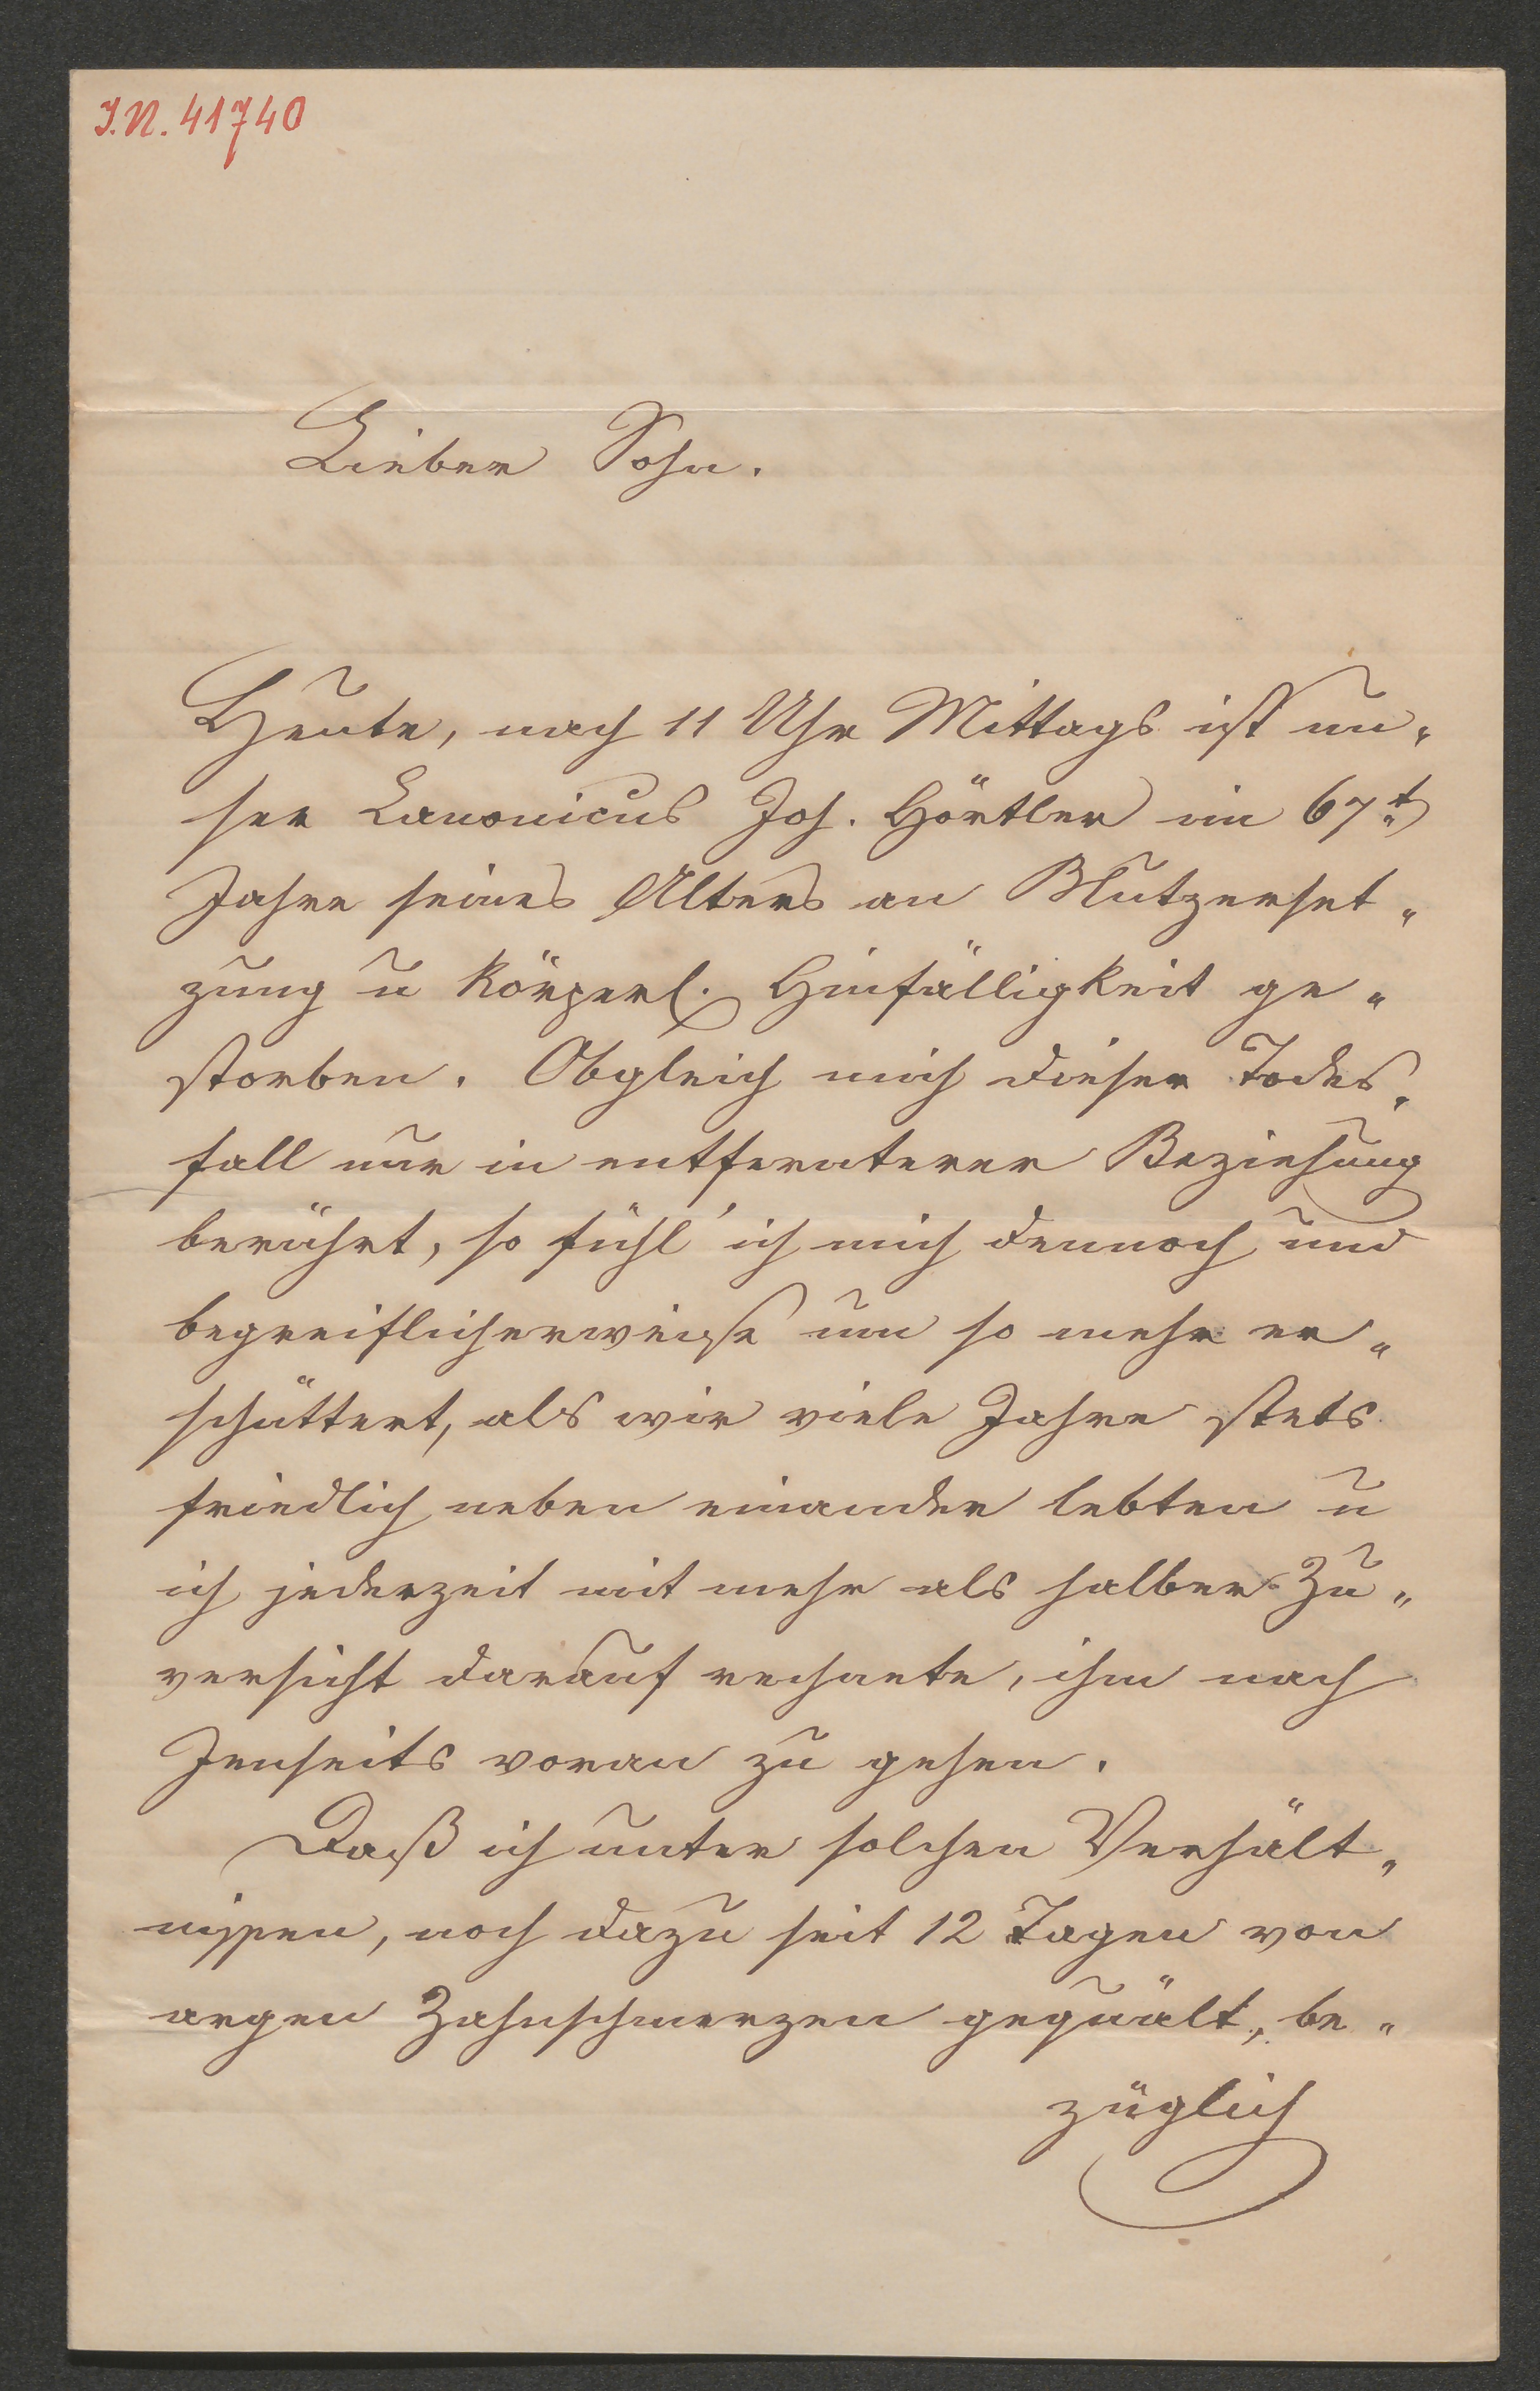 I.N. 41740
Lieber Sohn.
Heute, nach 11 Uhr Mittags ist un„
ser Canonicus Joh. Hörtler im 67t
Jahre seines Alters an Blutzerset„
zung u körperl. Hinfälligkeit ge„
storben. Obgleich mich dieser Todes„
fall nur in entfernterer Beziehung
berührt, so fühl' ich mich dennoch und
begreiflicherweise um so mehr er„
schüttert, als wir viele Jahre stets
friedlich neben einander lebten u
ich jederzeit mit mehr als halber Zu„
versicht darauf rechnete, ihm nach
Jenseits voran zu gehen.
Daß ich unter solchen Verhält„
nissen, noch dazu seit 12 Tagen von
argen Zahnschmerzen gequält, be„
züglich